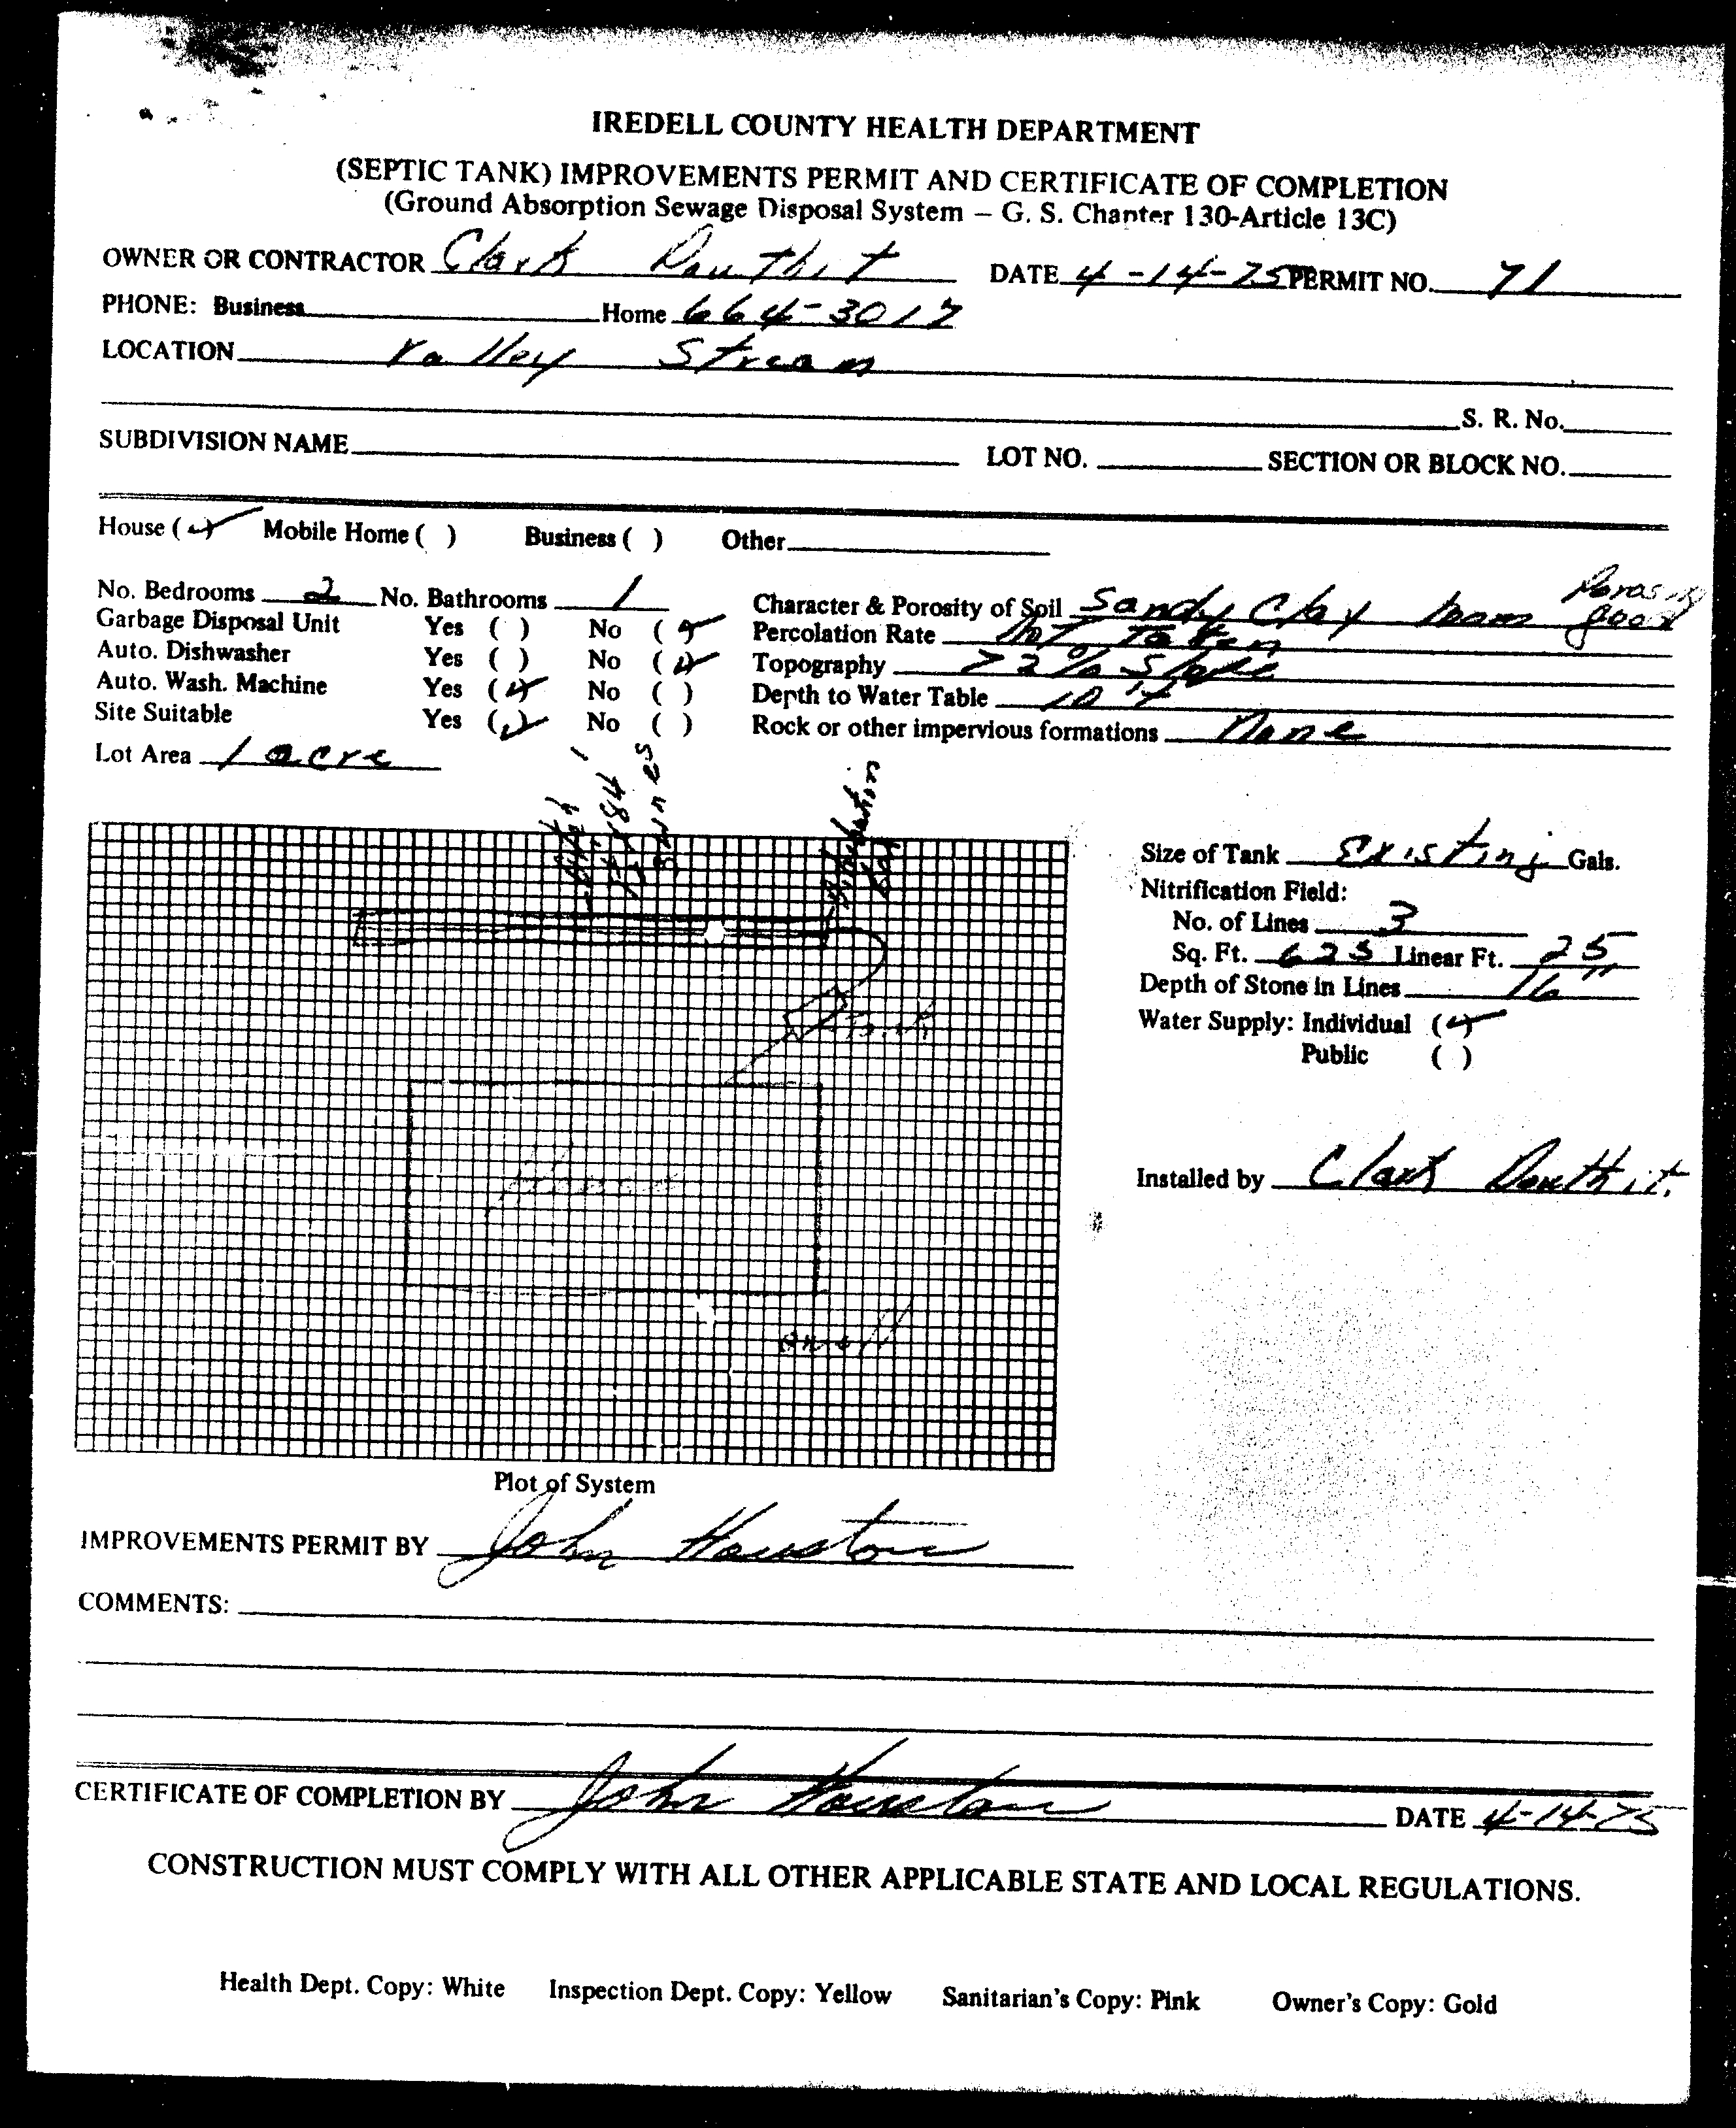 IREDELL COUNTY HEALTH DEPARTMENT
(SEPTIC TANK) IMPROVEMENTS PERMIT AND CERTIFICATE OF COMPLETION
(Ground Absorption Sewage Disposal System – G. S. Chapter 130-Article 13C)
OWNER OR CONTRACTOR Clark Douthit DATE 4-14-75 PERMIT NO. 71
PHONE: Business Home 664-3017
LOCATION Valley Stream
S. R. No.
SUBDIVISION NAME LOT NO. SECTION OR BLOCK NO.
House (✓) Mobile Home ( ) Business ( ) Other
No. Bedrooms 2 No. Bathrooms 1 Character & Porosity of Soil Sandy Clay loam Porosity good
Garbage Disposal Unit Yes ( ) No (✓) Percolation Rate Not Taken
Auto. Dishwasher Yes ( ) No (✓) Topography >2% Slope
Auto. Wash. Machine Yes (✓) No ( ) Depth to Water Table 10'+
Site Suitable Yes (✓) No ( ) Rock or other impervious formations None
Lot Area 1 acre
3 lines
Distribution Box
Size of Tank Existing Gals.
Nitrification Field:
No. of Lines 3
Sq. Ft. 625 Linear Ft. 25
Depth of Stone in Lines 16"
Tank
Water Supply: Individual (✓)
Public ( )
Installed by Clark Douthit.
House
Well
Plot of System
IMPROVEMENTS PERMIT BY John Houston
COMMENTS:
CERTIFICATE OF COMPLETION BY John Houston DATE 4-14-75
CONSTRUCTION MUST COMPLY WITH ALL OTHER APPLICABLE STATE AND LOCAL REGULATIONS.
Health Dept. Copy: White Inspection Dept. Copy: Yellow Sanitarian's Copy: Pink Owner's Copy: Gold